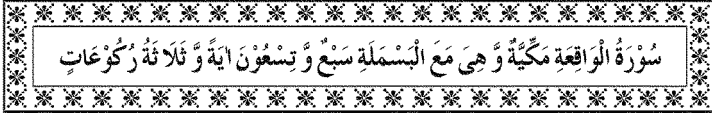 سُوْرَةُ الْوَاقِعَةِ مَكِّيَّةٌ وَّ هِىَ مَعَ الْبَسْمَلَةِ سَبْعٌ وَّ تِسْعُوْنَ اٰيَةً وَّ ثَلَا ثَةُ رُكُوْعَاتٍ